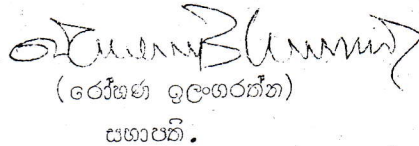 (රෝහණ ඉලංගරත්න)
සභාපති.